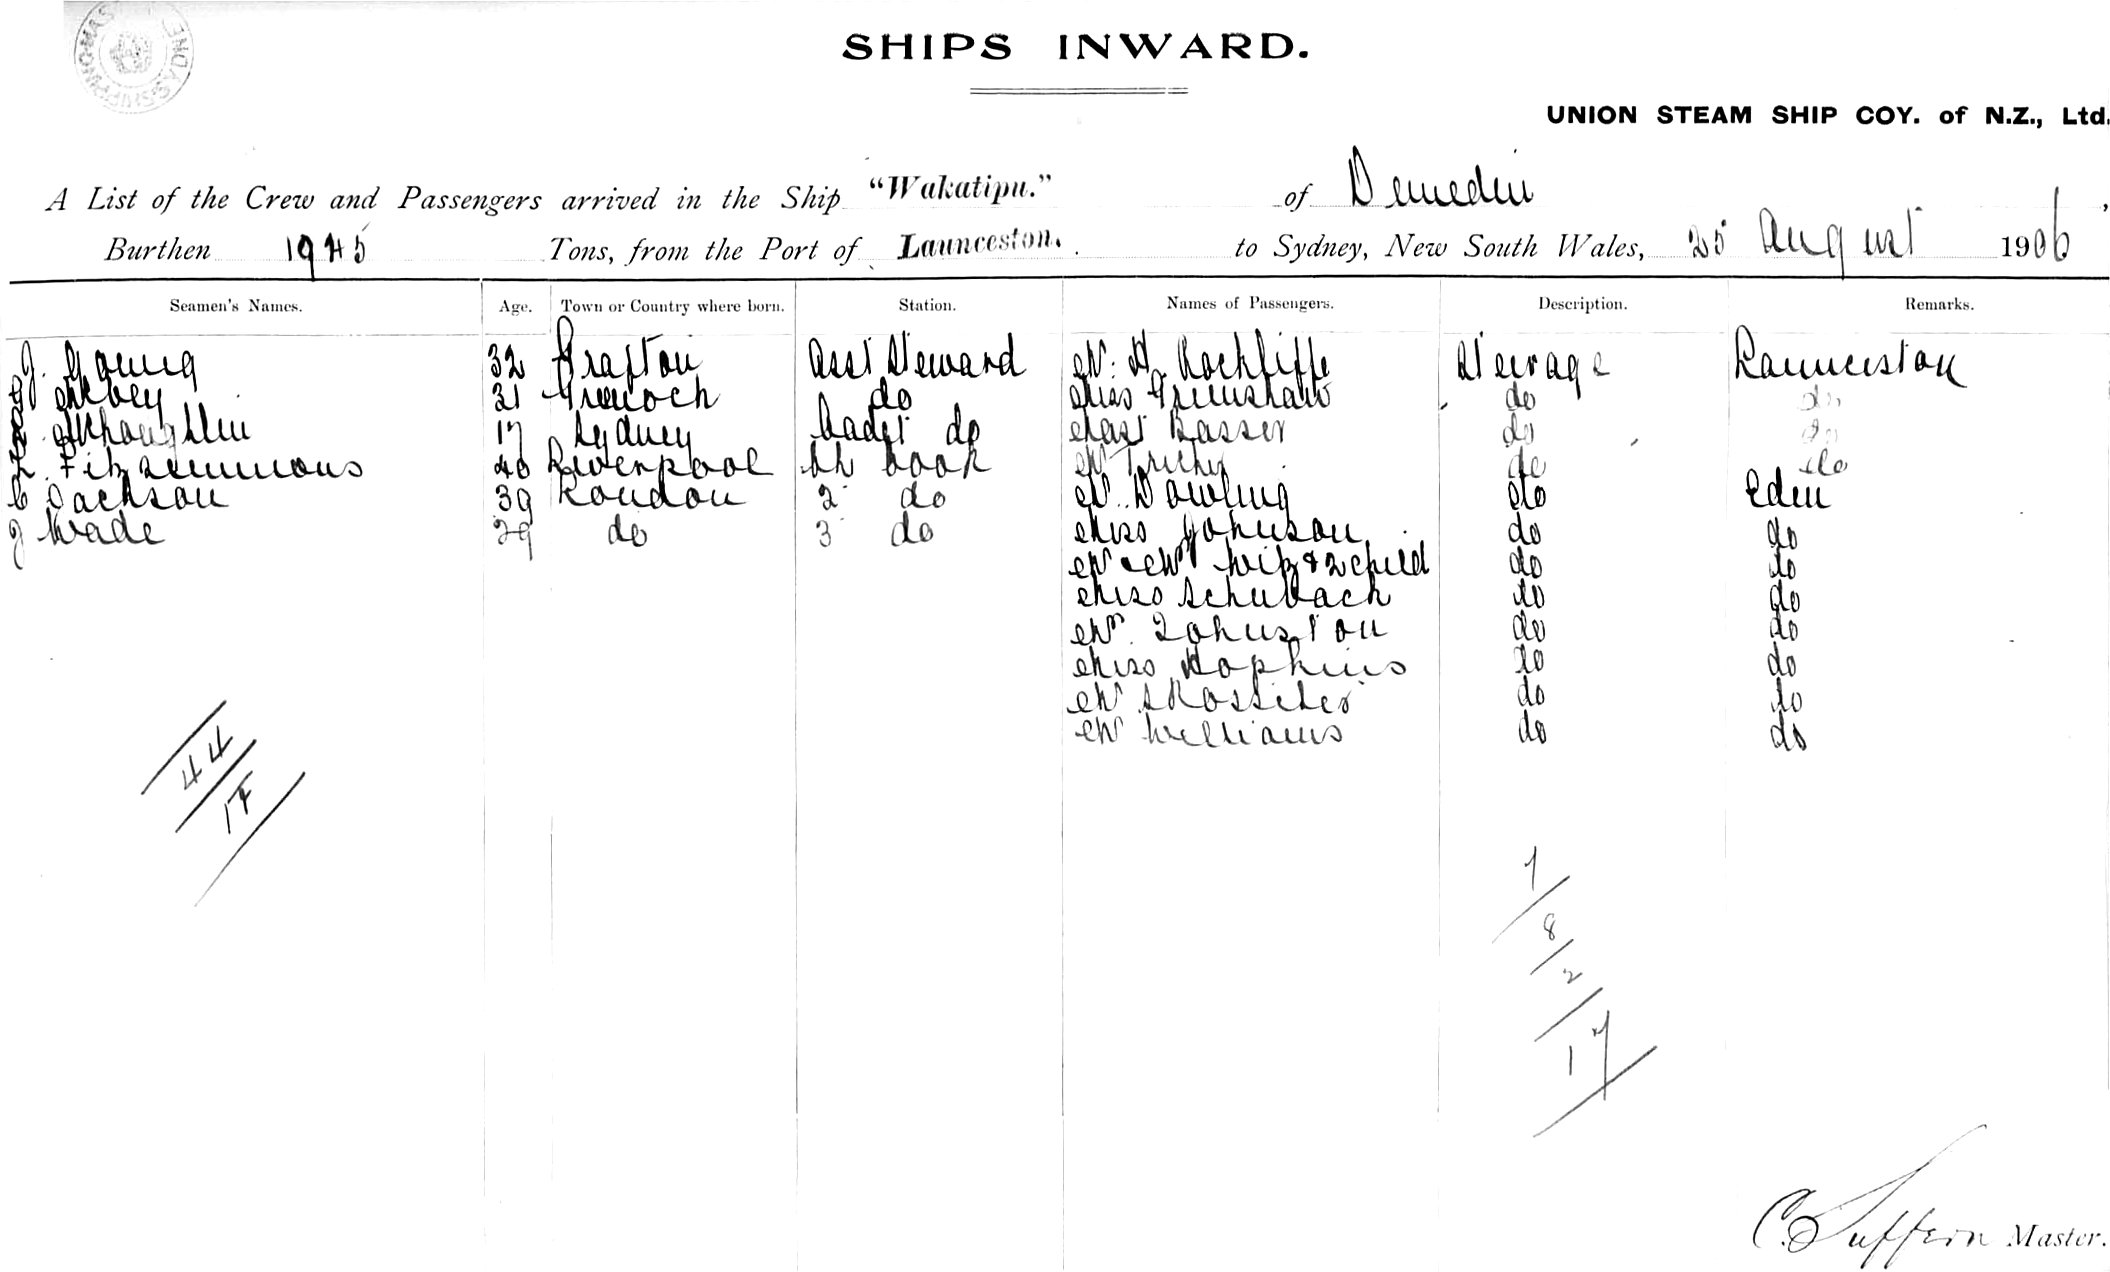 SHIPS INWARD.
UNION STEAM SHIP COY. of N.Z., Ltd.
A List of the Crew and Passengers arrived in the Ship "Wakatipu." of Dunedin,
Burthen 1945 Tons, from the Port of Launceston. to Sydney, New South Wales, 25 August 1906
Seamen's Names. Age. Town or Country where born. Station. Names of Passengers. Description. Remarks.
J. Young 32 Grafton Asst Steward Mr. H. Rockliffe Steerage Launceston
31 Greenock do Miss Grimshaw do do
McLoughlin 17 Sydney Cadet do Mast Basser do do
Fitzsimmons 40 Liverpool Ch Cook Mr do do
C Jackson 39 London 2 do Mr. Dowling do Eden
J Wade 29 do 3 do Miss Johnson do do
Mr & Mrs & 2 child do do
Miss Schubach do do
Mrs. Johnston do do
Miss Hopkins do do
Mr Rossiter do do
Mr Williams do do
44
17
7
8
2
17
C. Suffern Master.